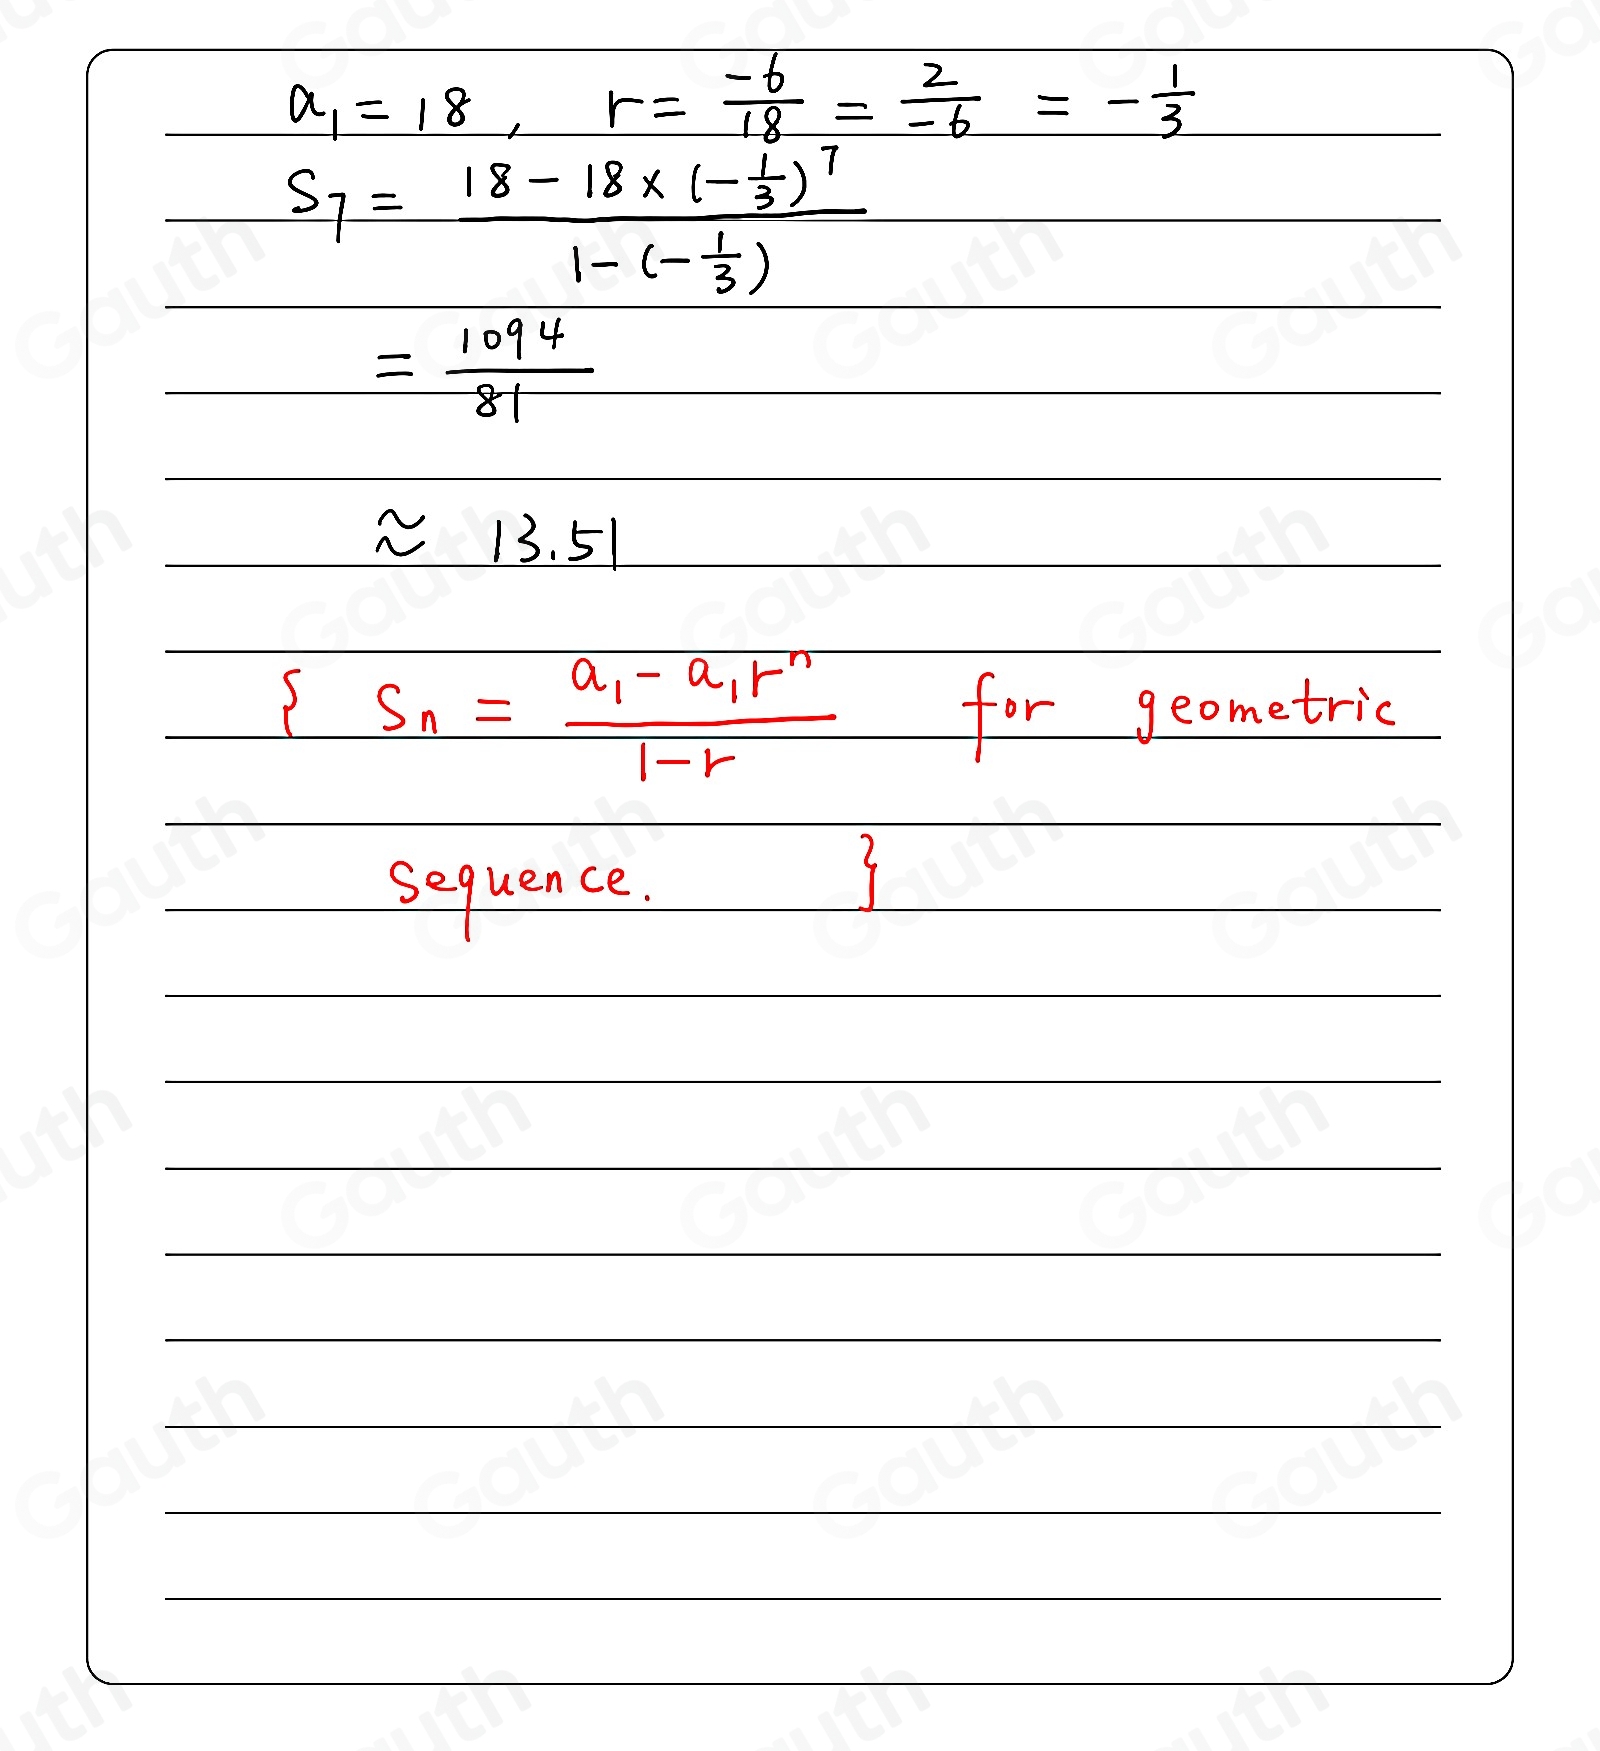 a₁ = 18 , r = -6/18 = 2/-6 = -1/3
S₇ = (18 - 18 × (-1/3)⁷)/(1 - (-1/3))
= 1094/81
≈ 13.51
{ Sₙ = (a₁ - a₁rⁿ)/(1 - r) for geometric
sequence. }
Gauth